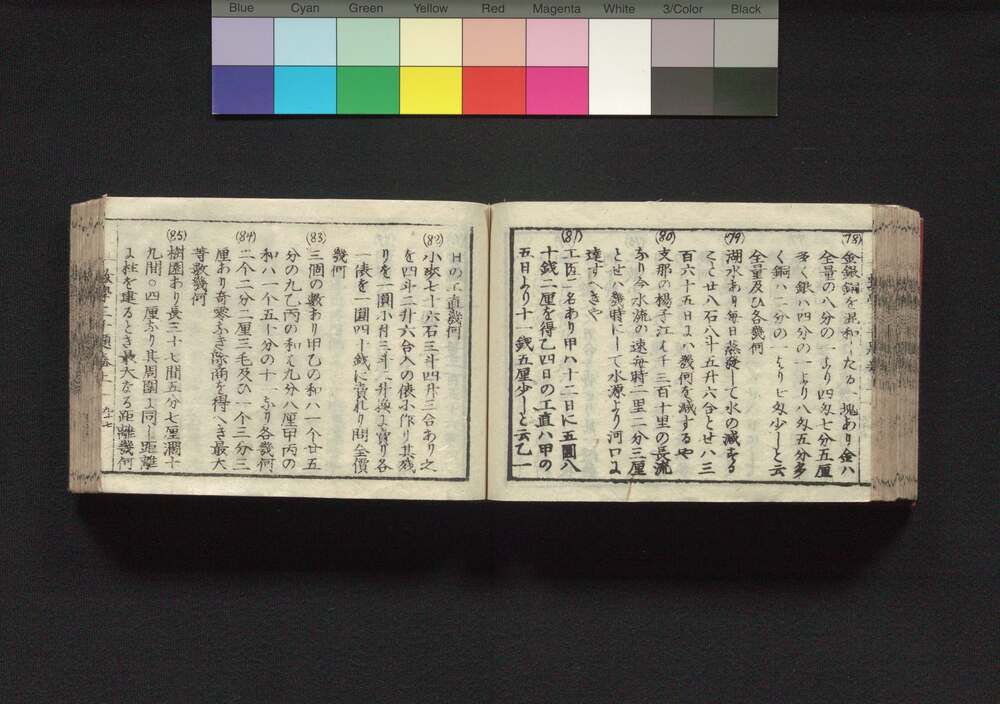 Blue Cyan Green Yellow Red Magenta White 3/Color Black
(78)
金銀銅を混和したる一塊あり金ハ
全量の八分の一より四匁七分五厘
多く銀ハ四分の一より八匁五分多
く銅ハ二分の一より七匁少しと云
全量及ひ各幾何
(79)
湖水あり毎日蒸発して水の減する
こと廿八石八斗五升六合とせハ三
百六十五日にハ幾何を減するや
(80)
支那の楊子江ハ千三百十里の長流
なり今水流の速毎時二里二分三厘
とせハ幾時にして水源より河口に
達すへきや
(81)
工匠二名あり甲ハ十二日に五圓八
十銭二厘を得乙四日の工直ハ甲の
五日より十一銭五厘少しと云乙一
日の工直幾何
(82)
小麥七十六石三斗四升三合あり之
を四斗二升六合入の俵に作り其残
りを一圓に付三斗二升換に賣り各
一俵を一圓四十銭に賣れり問全價
幾何
(83)
三個の數あり甲乙の和ハ一个廿五
分の九乙丙の和ハ九分八厘甲丙の
和ハ一个五十分の十一なり各幾何
(84)
二个二分二厘三毛及ひ一个三分三
厘あり奇零なき除商を得へき最大
等數幾何
(85)
樹園あり長三十七間五分七厘濶十
九間〇四厘なり其周圍に同し距離
に柱を建るとき最大なる距離幾何